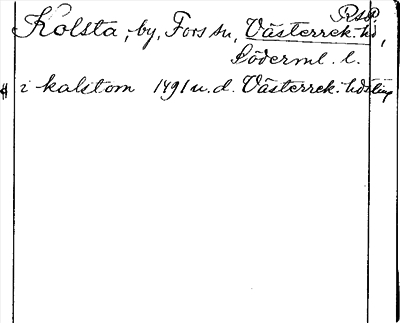 Kolsta, by, Fors sn, Västerrek. hd,
Söderml. l.
i kalstom 1491 u. d. Västerrek. hds